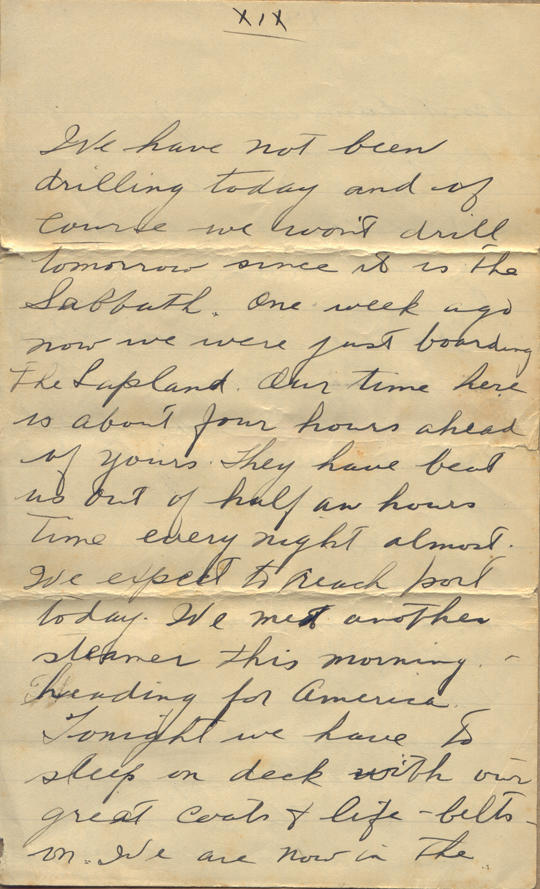 XIX
We have not been
drilling today and of
course we won't drill
tomorrow since it is the
Sabbath. One week ago
now we were just boarding
the Lapland. Our time here
is about four hours ahead
of yours. They have beat
us out of half an hours
time every night almost.
We expect to reach port
today. We met another
steamer this morning -
heading for America.
Tonight we have to
sleep on deck with our
great coats & life-belts-
on. We are now in the